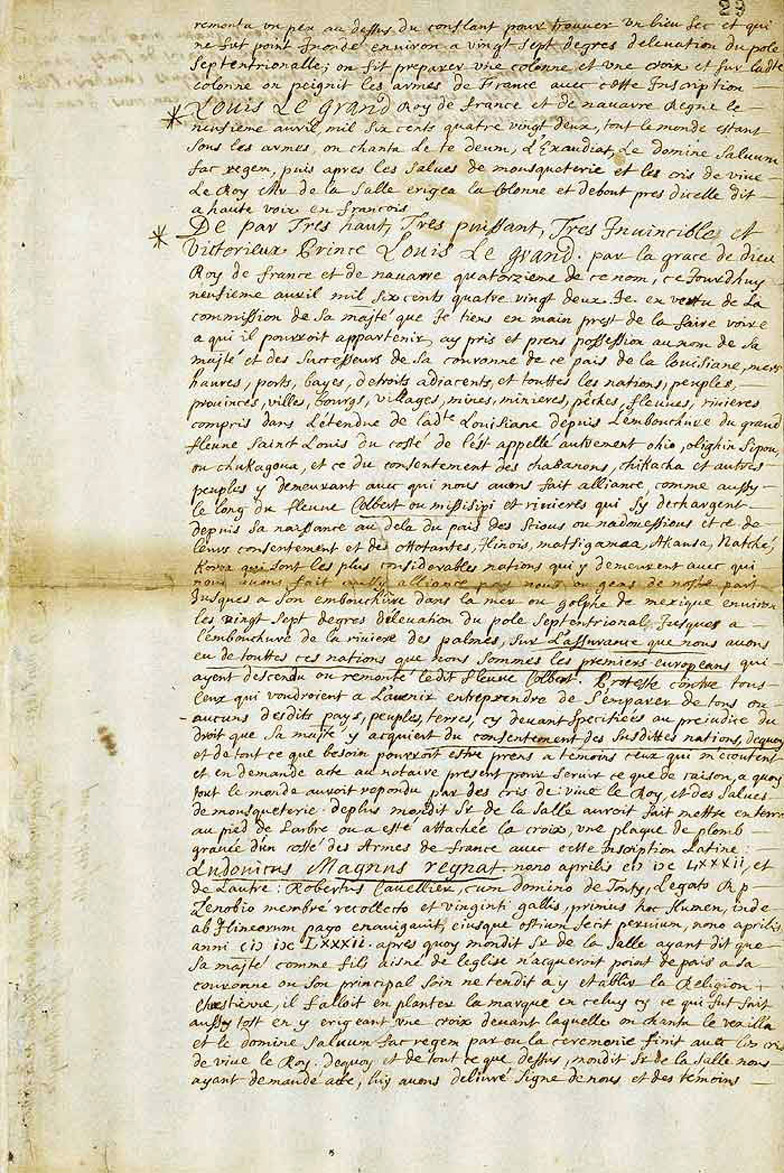 29
remonta un peu au dessus du conflant pour trouver un lieu sec et qui
ne fut point Inondé environ a vingt sept degres delevation du pole
Septentrionalle; on fit preparer une colonne et une croix et sur ladte
colonne on peignit les armes de France avec cette Inscription
Louis Le Grand Roy de france et de navarre Regne le
neufieme avril mil six cents quatre vingt deux, tout le monde estant
sous les armes, on chanta Le te deum, L'Exaudiat, Le domine salvum
fac regem, puis apres les salves de mousqueterie et les cris de vive
Le Roy Mr de la Salle erigea la colonne et debout pres dicelle dit
a haute voix en francois
De par Tres haut, Tres puissant, Tres Invincible et
Victorieux Prince Louis Le grand. par la grace de dieu
Roy de france et de navarre quatorzieme de ce nom, ce Jourdhuy
neufieme avril mil six cents quatre vingt deux. Je en vertu de La
commission de Sa majté que Je tiens en main prest de la faire voire
a qui il pourroit appartenir, ay pris et prens possession au nom de Sa
majté et des Successeurs de Sa couronne de ce pais de la louisiane, mers
havres, ports, bayes, detroits adiacents, et touttes les nations, peuples,
provinces, villes, bourgs, villages, mines, minieres, pêches, fleuves, rivieres
compris dans L'étendue de ladte Louisiane depuis L'embouchure du grand
fleuve Sainct Louis du costé de l'est appellé autrement ohio, olighin Sipou,
ou chukagoua, et ce du consentement des chabanons, chikacha et autres
peuples y demeurant avec qui nous avons fait alliance, comme aussy
le long du fleuve Colbert ou missisipi et rivieres qui sy dechargent
depuis Sa naissance au dela du pais des Sious ou nadouessious et ce de
leurs consentement et des ottotantes, Ilinois, matsigamea, Akansa, Natché
Koroa qui sont les plus considerables nations qui y demeurent avec qui
nous avons fait aussy alliance par nous ou gens de nostre part
Jusques a Son embouchure dans la mer ou golphe de mexique environ
les vingt Sept degres d'elevation du pole Septentrional Jusques a
l'embouchure de la riviere des palmes, Sur L'assurance que nous avons
eu de touttes ces nations que nous Sommes les premiers europeans qui
ayent descendu ou remonté ledit fleuve Colbert. Proteste contre tous
Ceux qui vondroient a L'avenir entreprendre de S'emparer de tous ou
aucuns desdits pays, peuples, terres, cy devant Specifiées au prejudice du
droit que Sa majté y acquiert du consentement des Susdittes nations, dequoy
et de tout ce que besoin pourroit estre prens a temoins ceux qui m'ecoutent
et en demande acte au notaire present pour servir ce que de raison, a quoy
tout le monde auroit repondu par des cris de vive le Roy, et des Salves
de mousqueterie. deplus mondit Sr de la Salle auroit fait mettre en terre
au pied de Larbre ou a esté attachée la croix, une plaque de plomb
gravée d'un costé des Armes de france avec cette Inscription Latine:
Ludovicus Magnus regnat nono aprilis LXXXII, et
de Lautre: Robertus Cavellier, cum domino de Tonty, Legato R p
Zenobio membré recollecto et viginti gallis, primus hoc flumen, inde
ab Ilineorum pago enavigavit, ejusque ostium fecit pervium, nono aprilis
anni LXXXII. après quoy mondit Sr de la Salle ayant dit que
Sa majté comme fils aisné de leglise n'acqueroit point de pais a sa
couronne ou Son principal Soin ne tendit a y etablir la Religion
Chrestienne, il falloit en planter la marque en celuy cy ce qui fut fait
aussy tost en y erigeant une croix devant laquelle on chanta le vexilla
et le domine Salvum fac regem par ou la ceremonie finit avec les cris
de vive le Roy. Dequoy et de tout ce que dessus, mondit Sr de la Salle nous
ayant demandé acte, luy avons delivré Signé de nous et des témoins